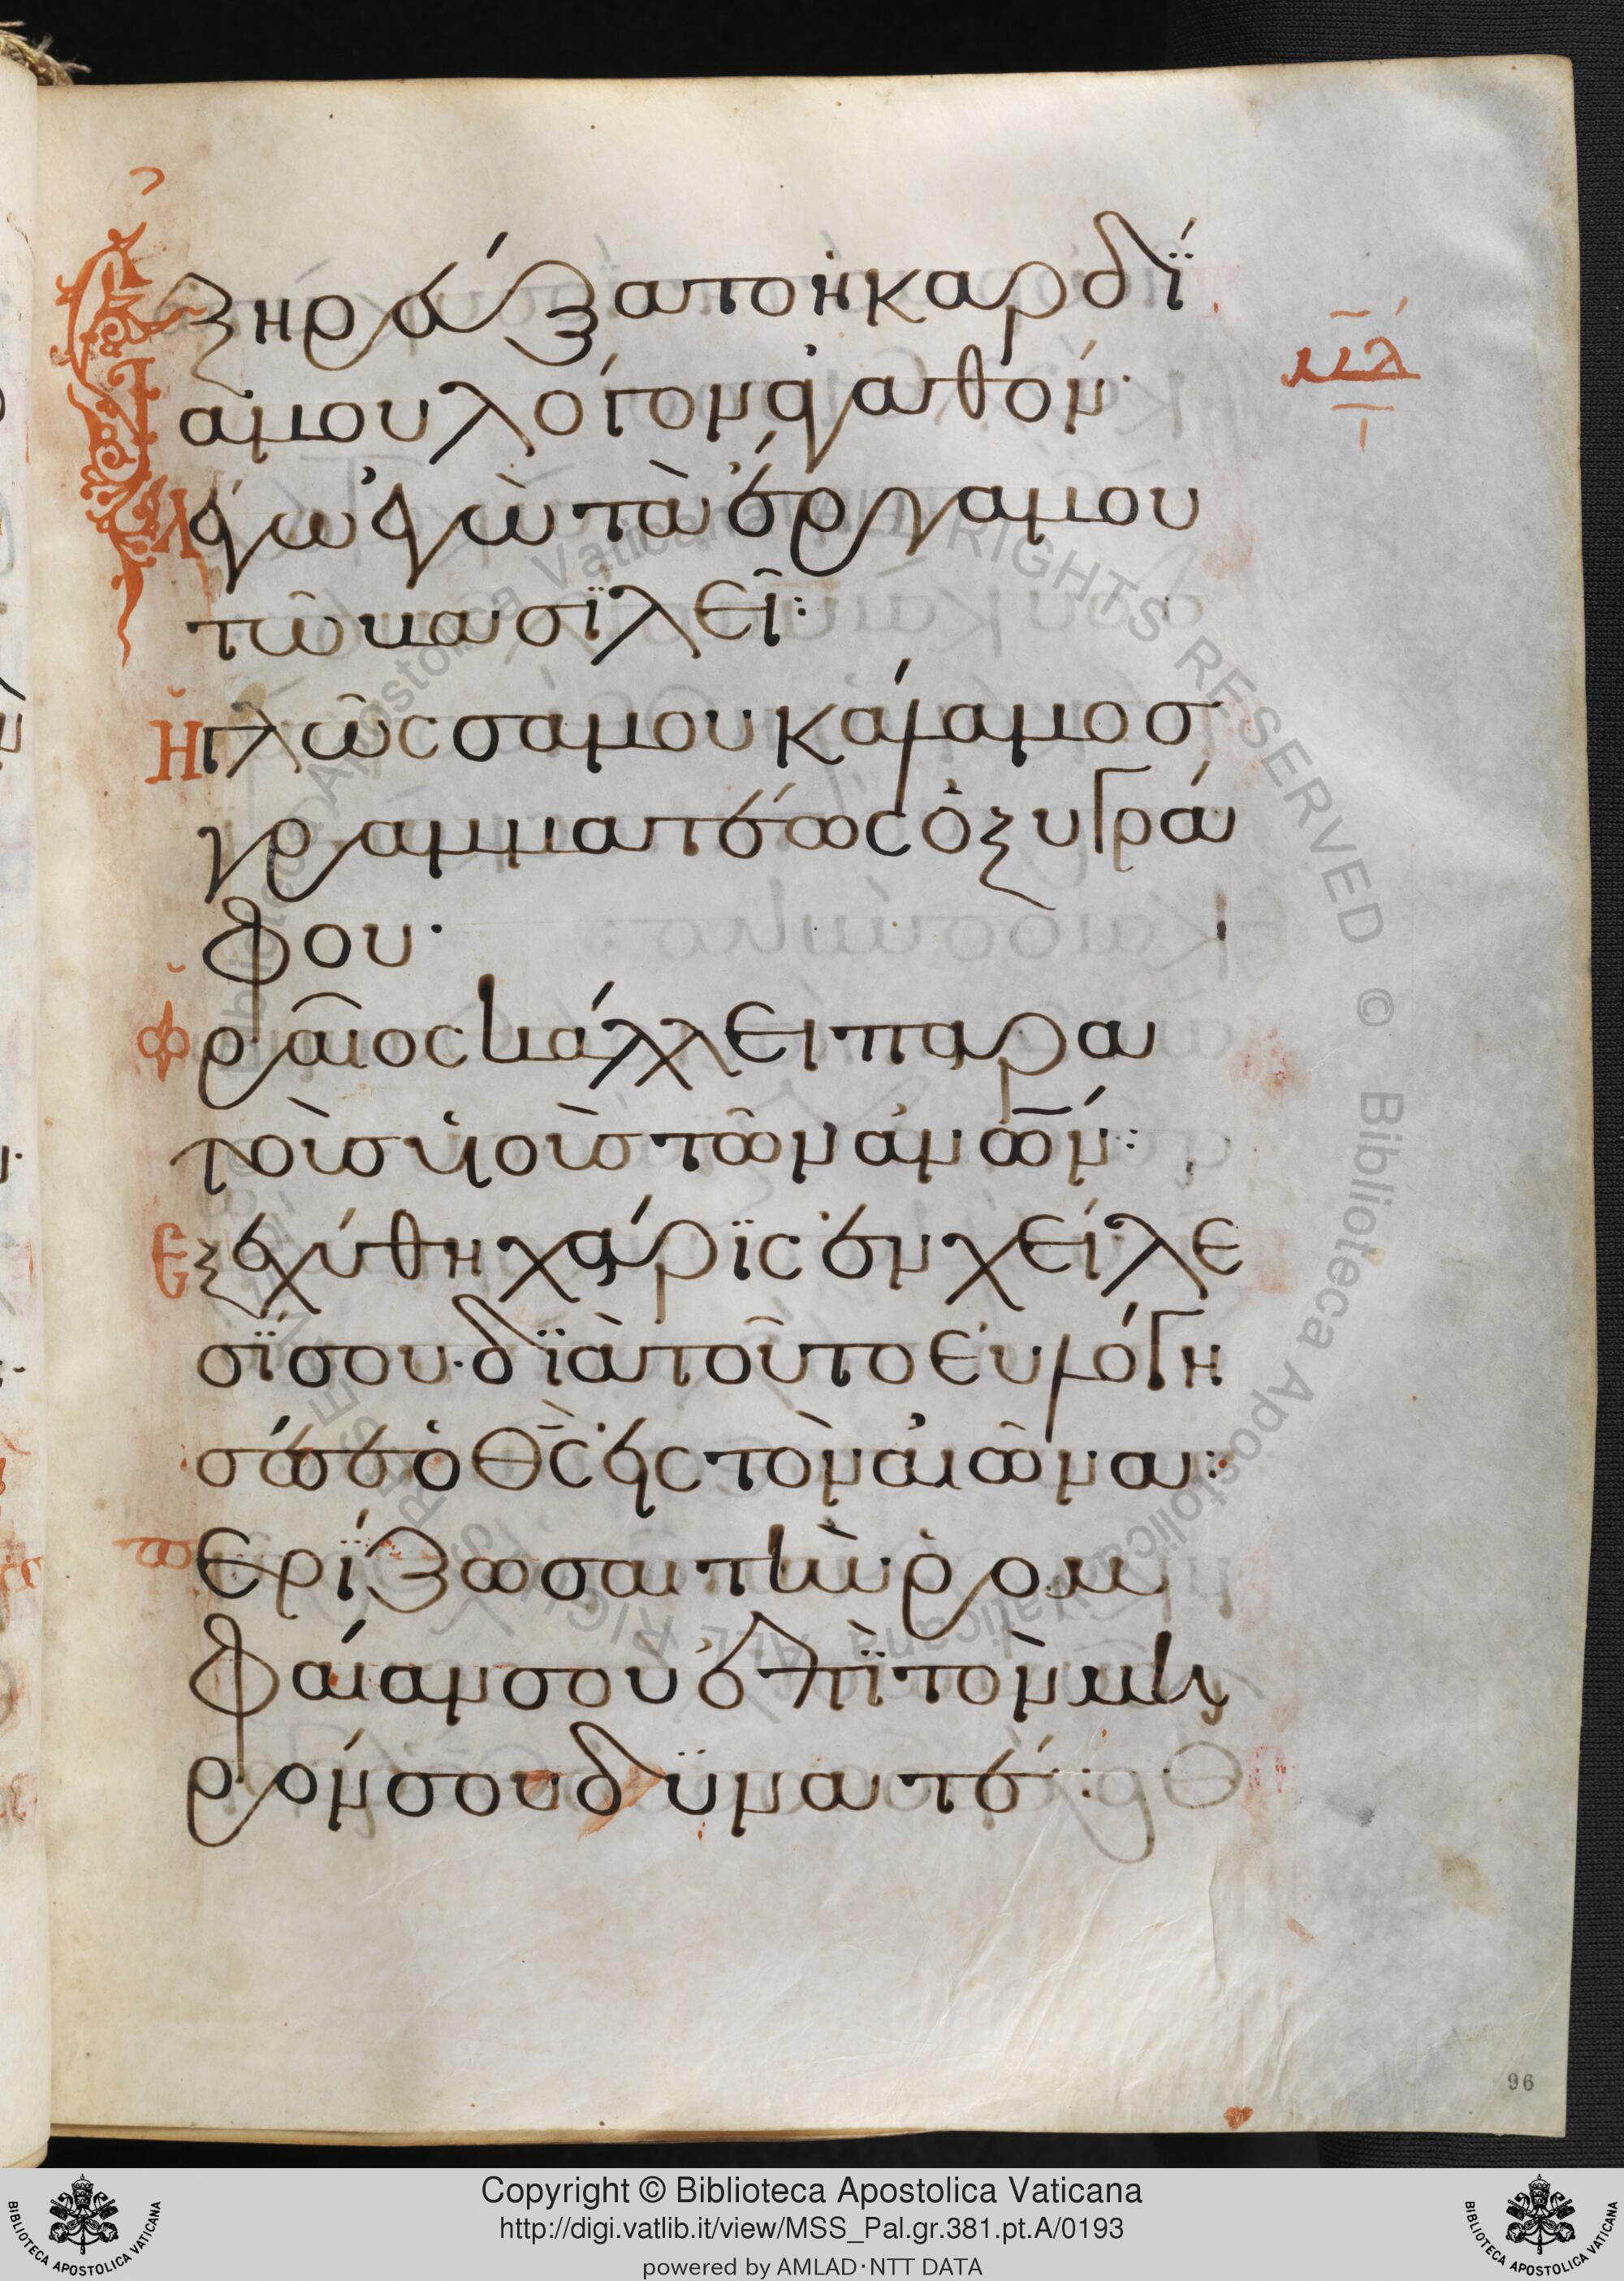 Ἐξηρεύξατο ἡ καρδί
α μου λόγον ἀγαθόν·
λέγω ἐγὼ τὰ ἔργα μου
τῶ βασιλεῖ:
μδ
Ἡ γλῶσσά μου κάλαμος
γραμματέως ὀξυγρά
φου·
Ὡραῖος κάλλει παρὰ
τοὺς υἱοὺς τῶν ἀνῶν:
Ἐξεχύθη χάρις ἐν χείλε
σί σου· διὰ τοῦτο εὐλόγη
σέ σε ὁ θς εἰς τὸν αἰῶνα:
Περίζωσαι τὴν ῥομ
φαίαν σου ἐπὶ τὸν μη
ρόν σου δυνατέ:
96
Copyright © Biblioteca Apostolica Vaticana
http://digi.vatlib.it/view/MSS_Pal.gr.381.pt.A/0193
powered by AMLAD·NTT DATA
BIBLIOTECA APOSTOLICA VATICANA
BIBLIOTECA APOSTOLICA VATICANA